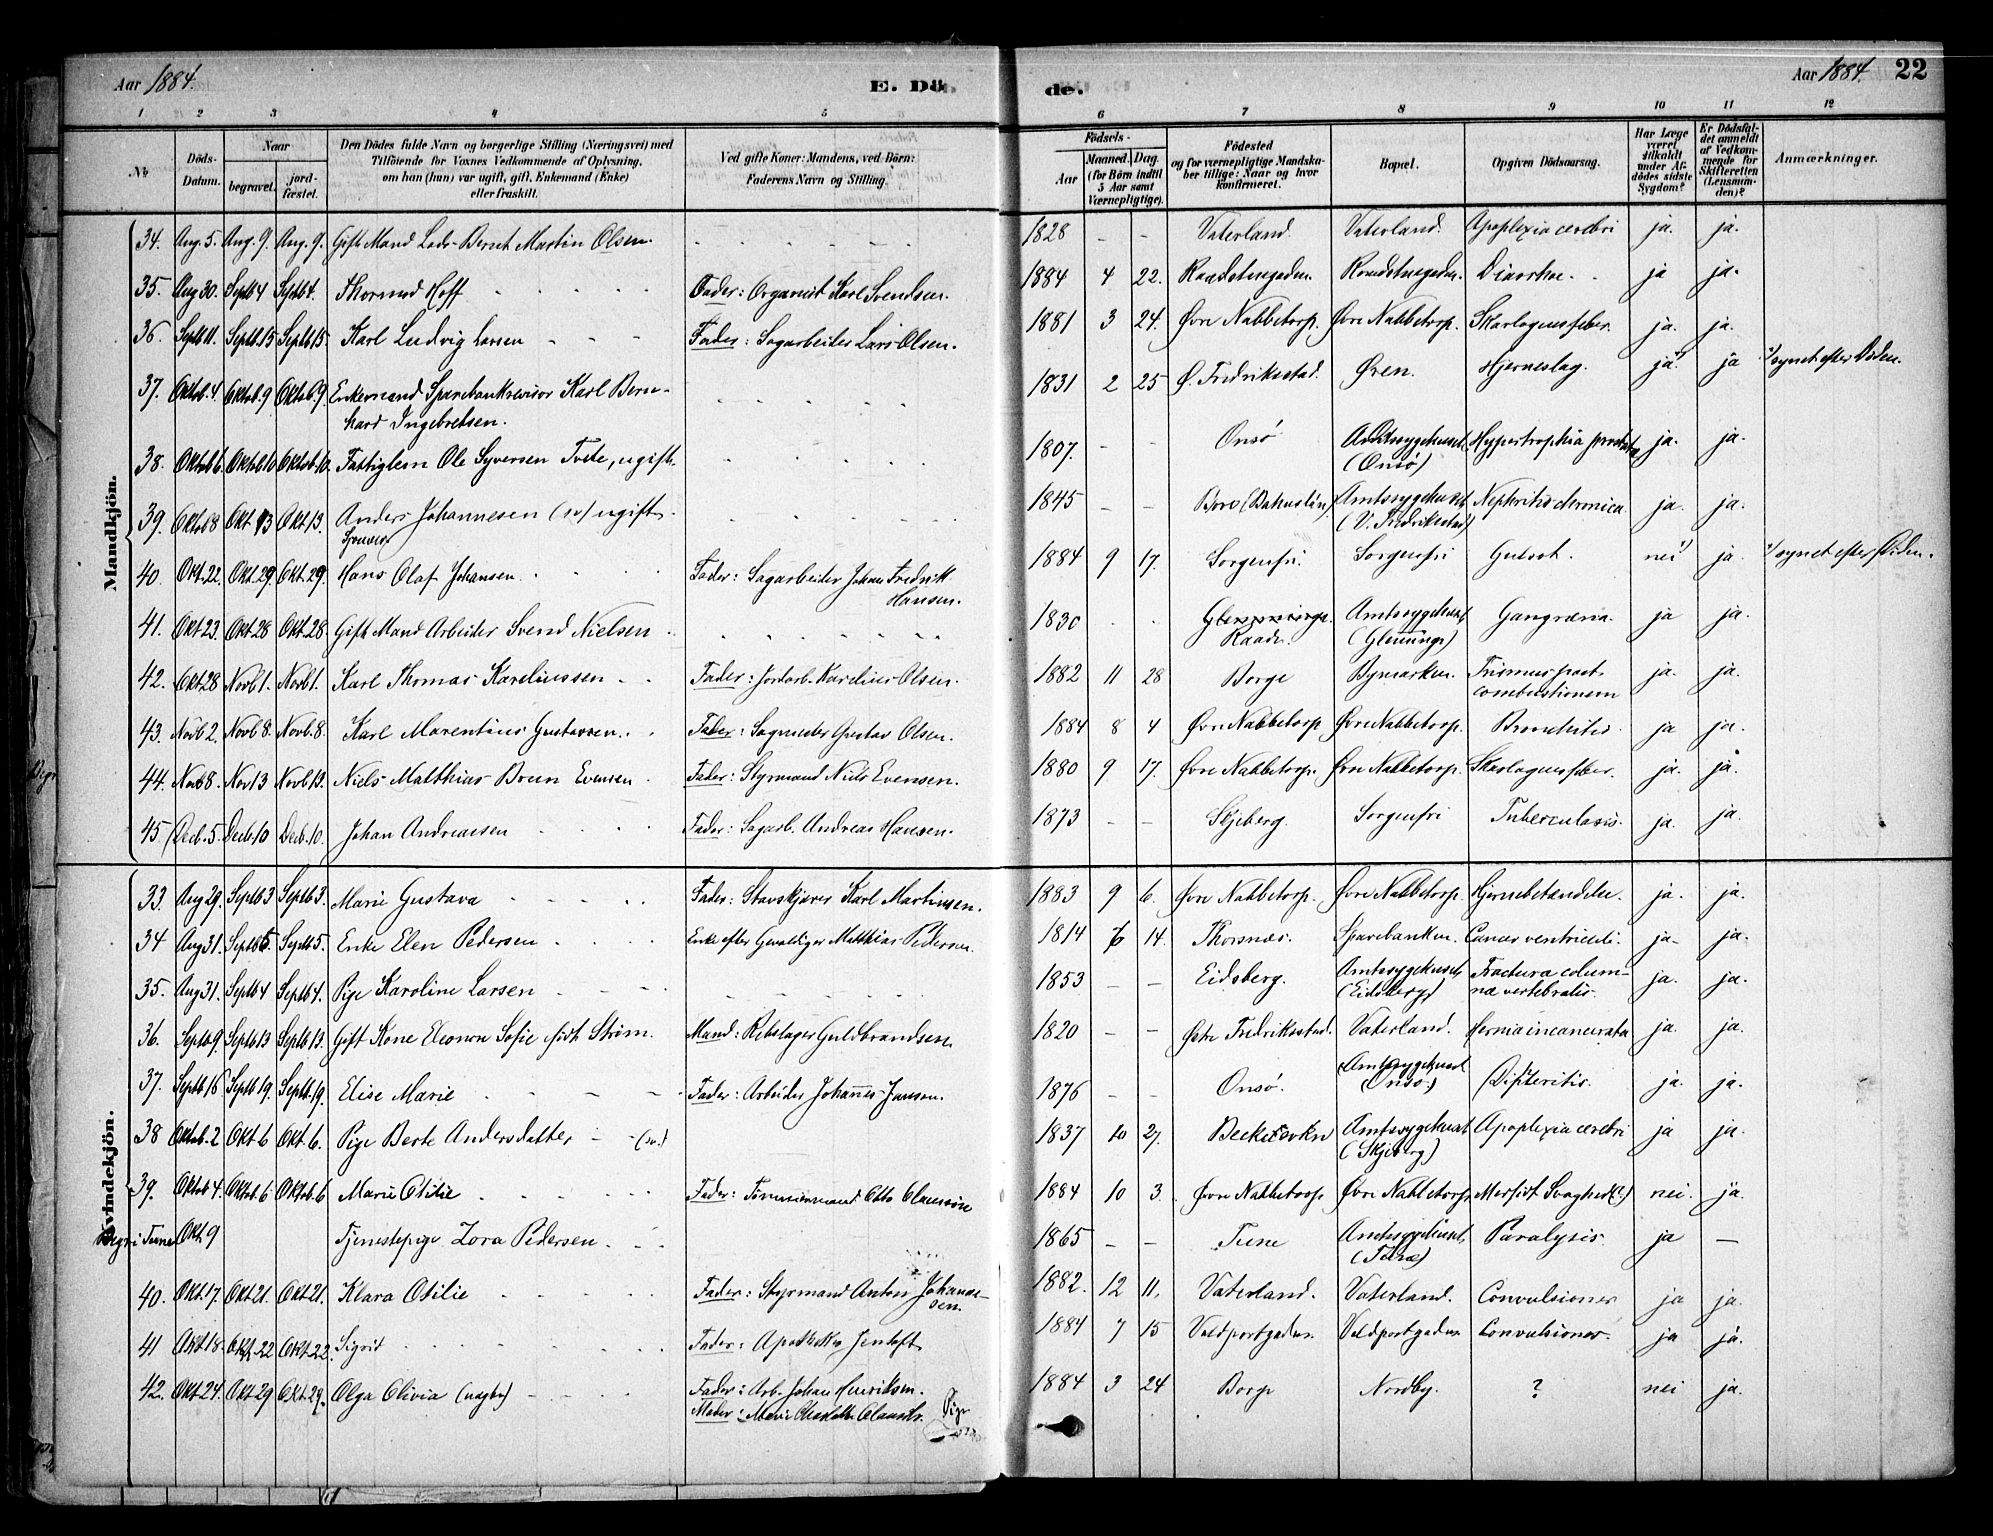 Aar 1884. E. Dö de. Aar 1884. 22
1 2 3 4 5 6 7 8 9 10 11 12
No
Döds-Datum.
Naar
begravet.
jordfæstet.
Den Dödes fulde Navn og borgerlige Stilling (Næringsvei) med
Tilföiende for Voxnes Vedkommende af Oplysning,
om han (hun) var ugift, gift, Enkemand (Enke)
eller fraskilt.
Ved gifte Koner: Mandens, ved Börn:
Faderens Navn og Stilling.
Födsels-
Aar
Maaned. Dag.
(for Börn indtil
5 Aar samt
Værnepligtige).
Födested
og for værnepligtige Mandska-
ber tillige: Naar og hvor
konfirmeret.
Bopæl.
Opgiven Dödsaarsag.
Har Læge
været
tilkaldt
under Af-
dödes sidste
Sygdom?
Er Dödsfal-
det anmeldt
af Vedkom-
mende for
Skifteretten
(Lensman-
den)?
Anmærkninger.
Mandkjön.
34. Aug 5. Aug. 9 Aug. 9. Gift Mand Lods Bernt Martin Olsen. 1828 – – Vaterland. Vaterland. Apoplexia cerebri ja. ja.
35. Aug 30. Septb 4 Septb 4. Thormod Hoff Fader: Organist Karl Svendsen. 1884 4 22. Raadstuegaden. Raadstuegaden. Diarrhe. ja ja.
36. Septb 11. Septb 15 Septb 15. Karl Ludvig Larsen Fader: Sagarbeider Lars Olsen. 1881 3 24. Øvre Nabbetorp. Øvre Nabbetorp. Skarlagensfeber. ja. ja.
37. Oktob. 4. Oktob. 9 Oktob. 9. Enkemand Sparebankrevisor Karl Bern- 1831 2 25 Ø. Fredriksstad. Øren. Hjerneslag. ja 1) ja 1/ synet efter Døden.
hard Ingebretsen.
38. Oktob 6. Oktob 10 Oktob. 10. Fattiglem Ole Syversen Tvete, ugift. 1807. – – Onsø Amtssygehuset Hypertrophia prostatæ ja. ja.
(Onsø)
39. Oktob 8 Okt 13 Okt 13. Anders Johannesen (sv) ugift 1845 – – Bore (Bahuslän) Amtssygehuset Nephritis chronica ja. ja.
(V. Fredriksstad)
40. Okt. 22. Okt 29 Okt. 29. Hans Olaf Johansen Fader: Sagarbeider Johan Fredrik 1884 9 17. Sorgenfri. Sorgenfri Gulsot. nei 1) ja 1/ synet efter Døden.
Hansen.
41. Okt 23. Okt 28 Okt. 28. Gift Mand Arbeider Svend Nielsen 1830 Amtssygehuset Gangræna. ja ja.
Raade. (Glemminge)
42. Okt 28 Novb 1. Novb 1. Karl Thomas Kareliussen Fader: Jordarb. Karelius Olsen. 1882 11 28 Borge Bymarken. Trismus post ja. ja.
combustionem
43. Novb 2. Novb 8. Novb. 8. Karl Marentius Gustavsen. Fader: Sagmester Gustav Olsen. 1884 8 4 Øvre Nabbetorp Øvre Nabbetorp. Bronchitis. ja ja.
44. Nov 8. Nov 13 Novb 13. Niels Matthias Brun Evensen Fader: Styrmand Niels Evensen. 1880 9 17. Øvre Nabbetorp. Øvre Nabbetorp. Skarlagensfeber. ja. ja.
45. Decb. 5. Decb 10 Decb. 10. Johan Andreassen Fader: Sagarb. Andreas Hansen. 1873 – – Skjeberg. Sorgenfri Tuberculosis. ja. ja.
Kvindekjön.
33. Aug 29. Septb 3 Septb 3. Marie Gustava Fader: Karl Martinsen. 1883 9 6. Øvre Nabbetorp. Øvre Nabbetorp. Hjernebetændelse. ja. ja.
34 Aug 31. Septb 5 Septb 5. Enke Elen Pedersen Enke efter Gevaldiger Matthias Pedersen 1814 14. Thorsnæs. Sparebanken. Cancer ventriculi. ja. ja.
35. Aug 31. Septb 4 Septb 4. Pige Karoline Larsen 1853 – – Eidsberg. Amtssygehuset Fractura colum- ja. ja.
(Eidsberg) næ vertebralis.
36. Septb 9. Septb 13 Septb 13. Gift Kone Eleonora Sofie født Strøm. Mand: Rebslager Guldbrandsen. 1820 – – Østre Fredriksstad. Vaterland. Hernia incarcerata ja. ja.
37. Septb 16 Septb 19. Septb. 19. Elise Marie Fader: Arbeider Johannes Jensen. 1876 – – Onsø. Amtssygehuset Difteritis. ja. ja.
(Onsø)
38 Oktob. 2 Okt 6 Okt. 6. Pige Berte Andersdatter (sv.) 1837 10 27. Amtssygehuset Apoplexia cerebri ja ja.
(Skjeberg)
39. Oktob 4. Oktob. 6 Oktob. 6 Marie Otilie Fader: Tømmermand Otto Claussøn 1884 10 3. Øvre Nabbetorp Øvre Nabbetorp Medfødt Svaghed (?) nei. ja.
Begr i Tune Okt 9 Tjenestepige Zora Pedersen 1865 – – Tune Amtssygehuset Paralysis ja –
(Tune)
40. Okt 17. Okt 21. Okt 21. Klara Otilie Fader: Styrmand Anton Johannes- 1882. 12 11. Vaterland. Vaterland. Convulsioner ja ja.
sen.
41 Okt 18. Okt. 22 Okt 22. Sigrid Fader: Apotheker Jentoft 1884 7 15 Voldportgaden. Voldportgaden Convulsioner. ja ja.
42. Okt 24. Okt 29 Okt 29. Olga Olivia (uægte) Fader: Arb. Johan Henriksen. 1884 3 24 Borge Nordby. ? nei ja.
Moder: Marie Charlotte Clausdtr. Pige